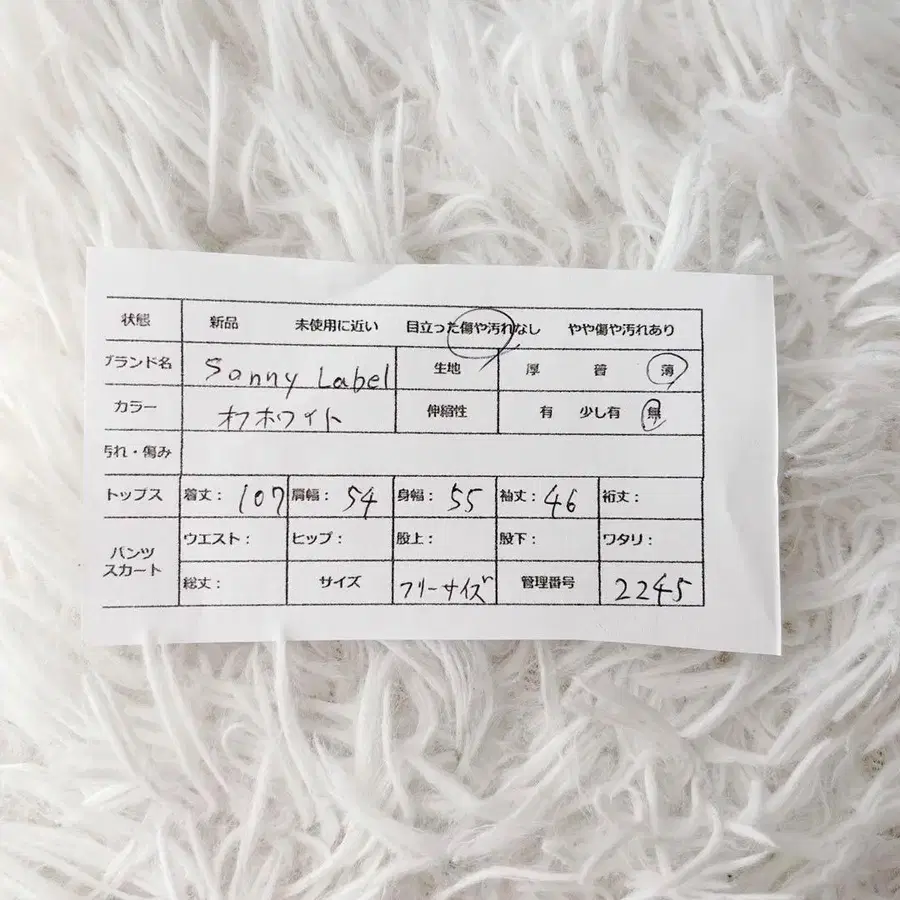 状態 新品 未使用に近い 目立った傷や汚れなし やや傷や汚れあり
ブランド名 Sonny Label 生地 厚 普 薄
カラー オフホワイト 伸縮性 有 少し有 無
汚れ・傷み
トップス 着丈: 107 肩幅: 54 身幅: 55 袖丈: 46 裄丈:
パンツ ウエスト: ヒップ: 股上: 股下: ワタリ:
スカート
総丈: サイズ フリーサイズ 管理番号 2245